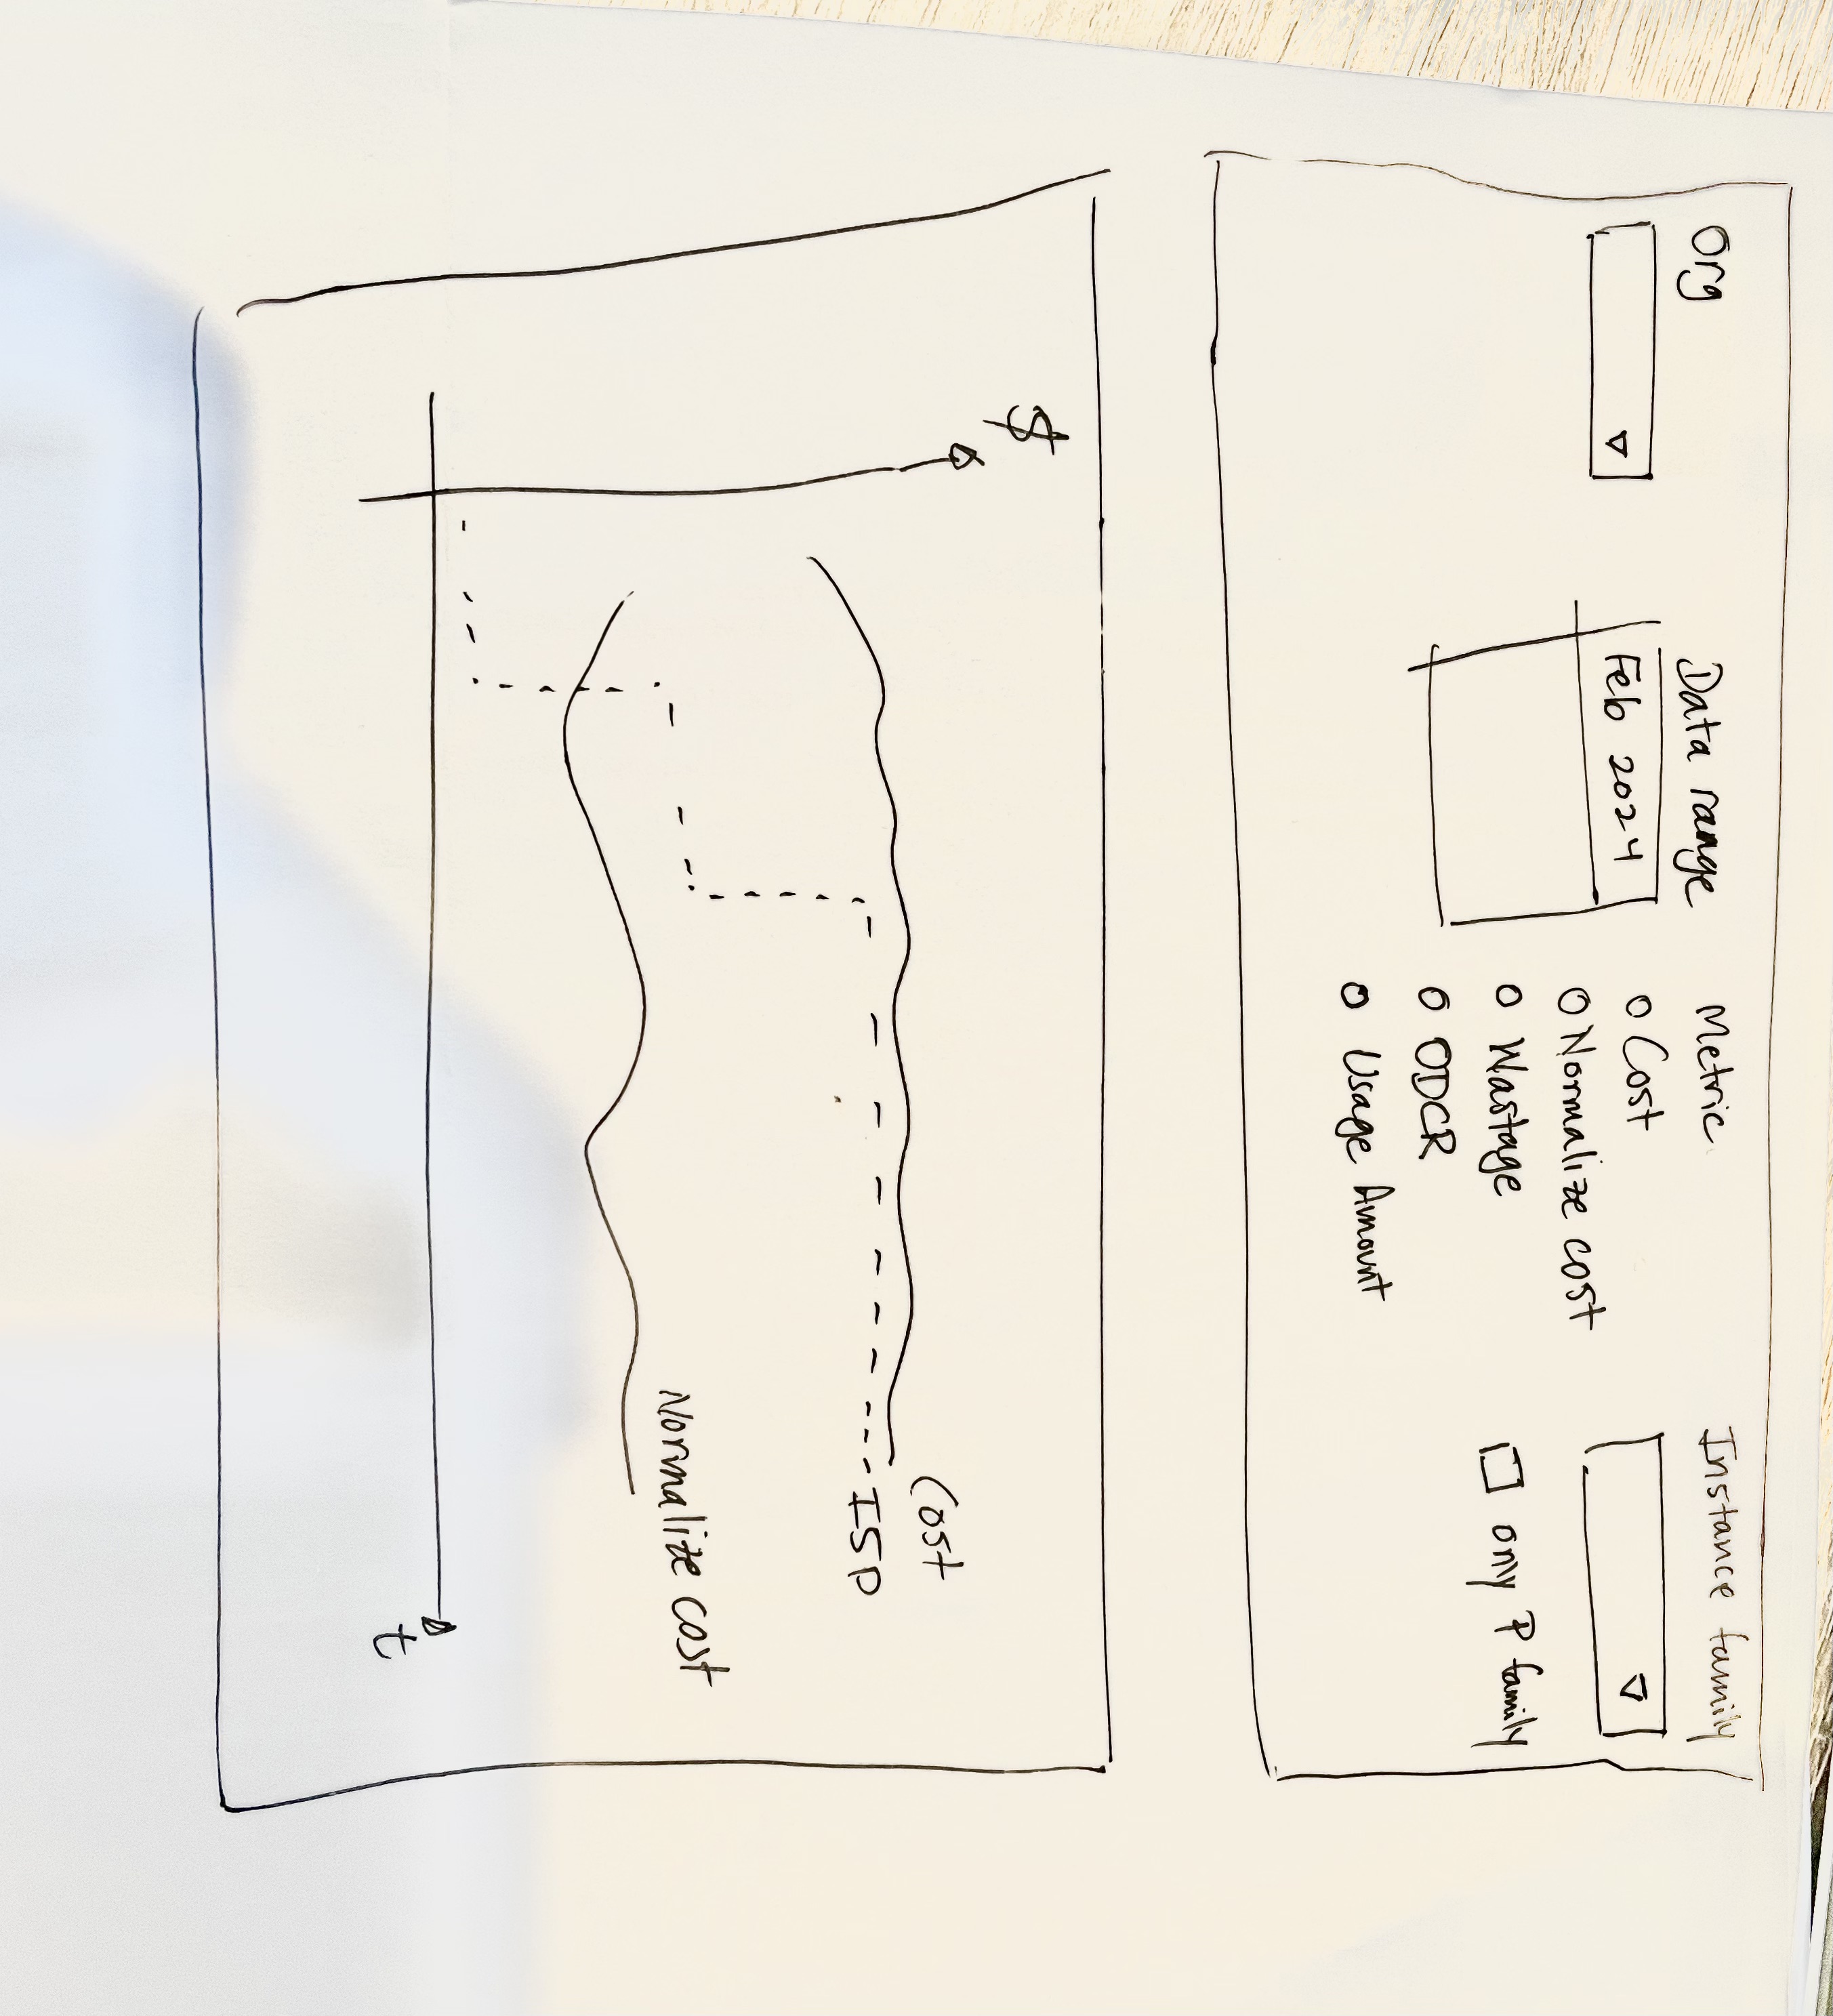 Org
Data range
Feb 2024
Metric
Cost
Normalize cost
Wastage
ODCR
Usage Amount
Instance family
only P family
$
Cost
ISP
Normalize cost
t